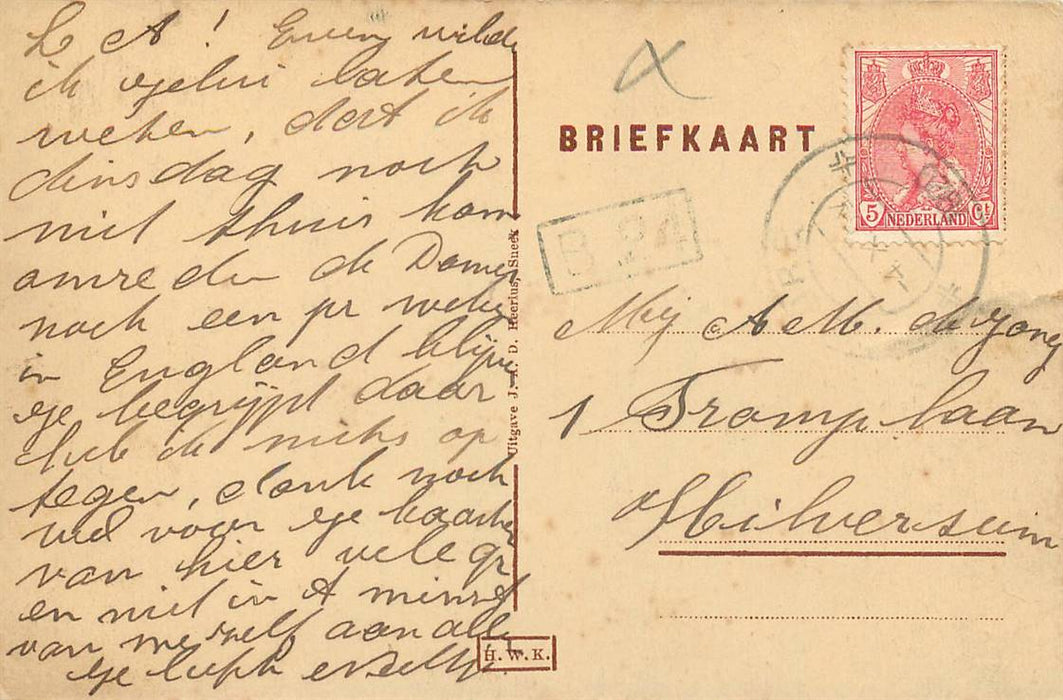 L A! Even wilde
ik jelui laten
weten, dat ik
dinsdag noch
niet thuis kom
omreden de Dames
noch een pr weken
in England blijven
je begrijpt daar
heb ik niets op
tegen, dank noch
wel voor je kaarten
van hier vele gr
en niet in 't minst
van mezelf aan alle
je liefh
Uitgave J. D. Heerius, Sneek
H. W. K.
BRIEFKAART
5 NEDERLAND Ct
B 24
Mej A M. de Jong
1 Tromplaan
Hilversum